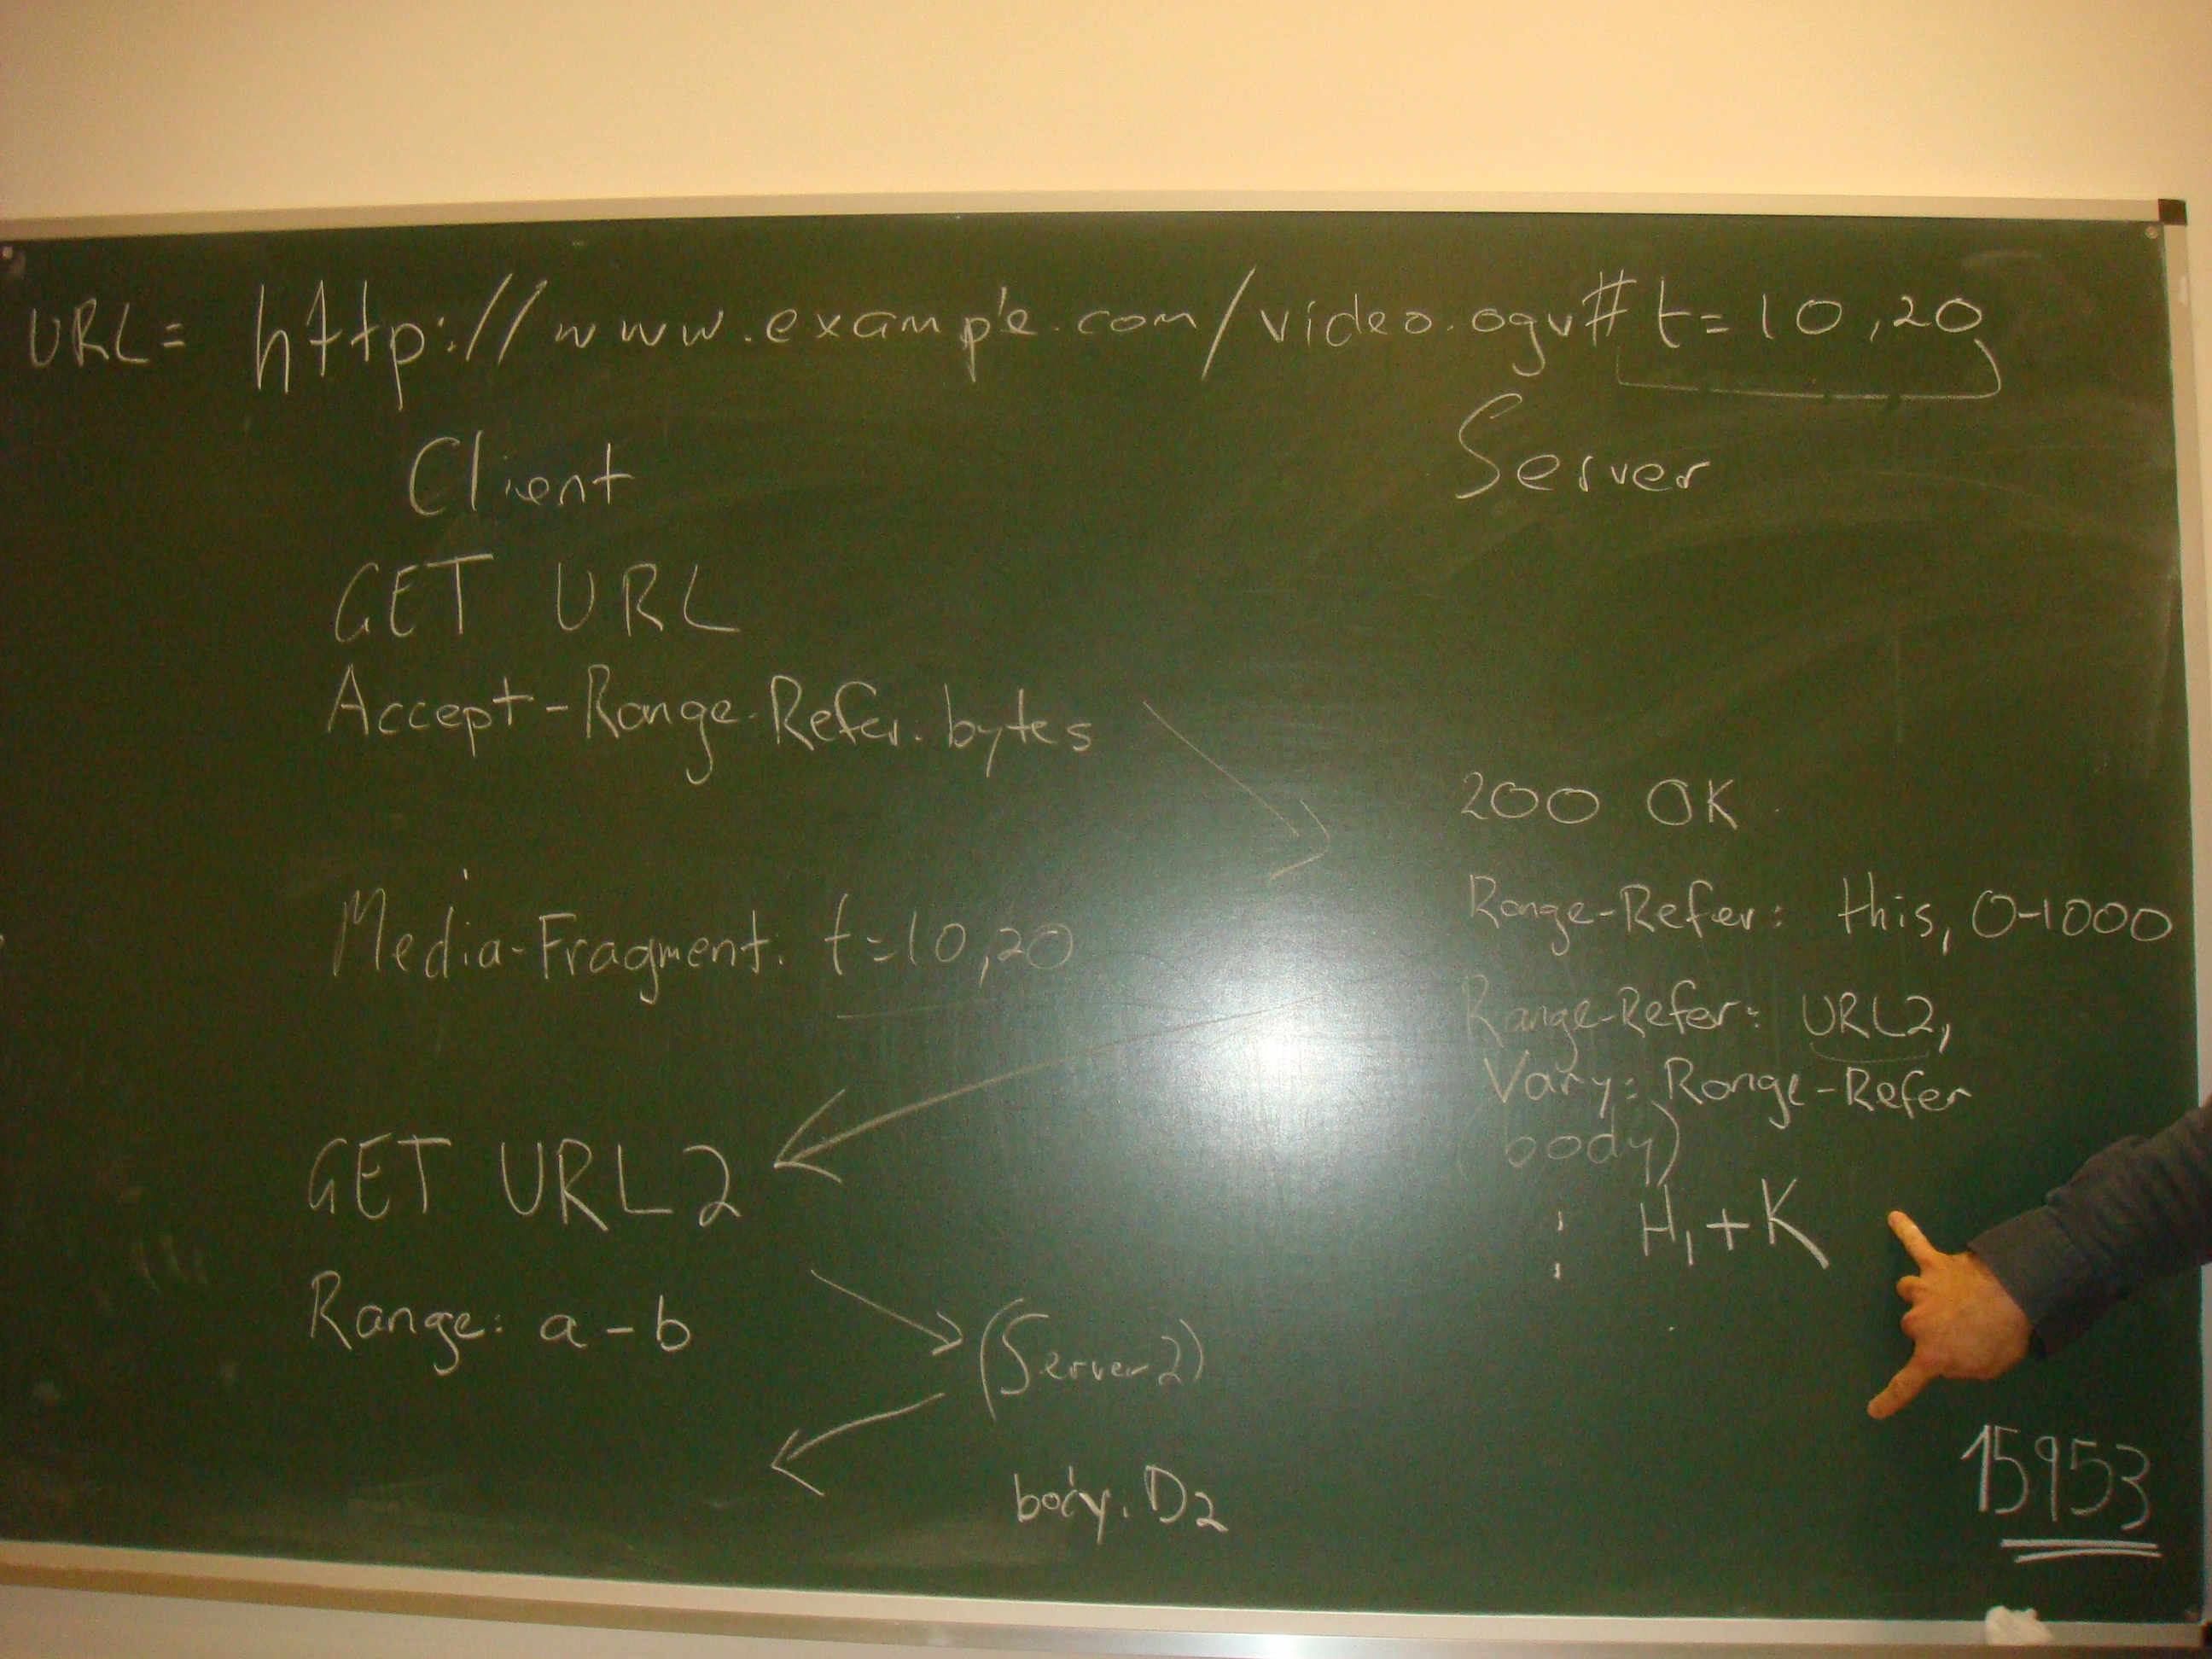 URL= http://www.example.com/video.ogv#t=10,20
Client
Server
GET URL
Accept-Range-Refer: bytes
Media-Fragment: t=10,20
200 OK
Range-Refer: this, 0-1000
Range-Refer: URL2,
Vary: Range-Refer
(body)
: H1+K
GET URL2
Range: a-b
(Server2)
body: D2
15953